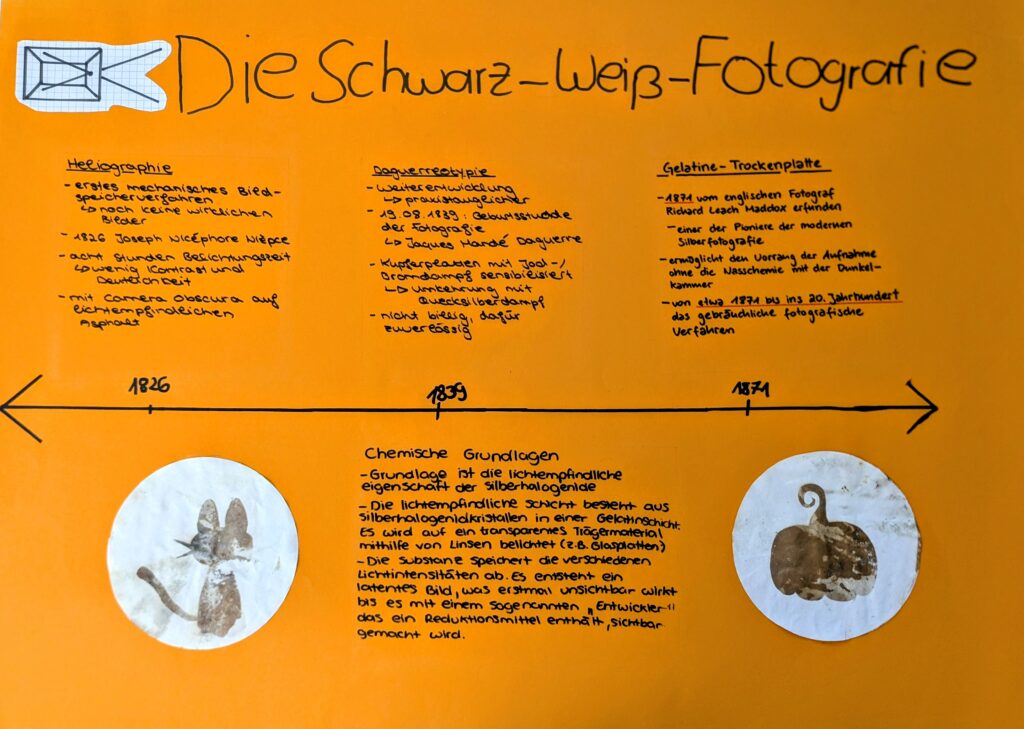 Die Schwarz-Weiß-Fotografie
Heliographie
- erstes mechanisches Bild-
speicherverfahren
↳ noch keine wirklichen
Bilder
- 1826 Joseph Nicéphore Nièpce
- acht Stunden Belichtungszeit
↳ wenig Kontrast und
Deutlichkeit
- mit Camera Obscura auf
lichtempfindlichen
Asphalt
Daguerreotypie
- Weiterentwicklung
↳ praxistauglicher
- 19.08.1839: Geburtsstunde
der Fotografie
↳ Jaques Mandé Daguerre
- Kupferplatten mit Jod-/
Bromdampf sensibilisiert
↳ Umkehrung mit
Quecksilberdampf
- nicht billig, dafür
zuverlässig
Gelatine-Trockenplatte
- 1871 vom englischen Fotograf
Richard Leach Maddox erfunden
- einer der Pioniere der modernen
Silberfotografie
- ermöglicht den Vorrang der Aufnahme
ohne die Nasschemie mit der Dunkel-
kammer
- von etwa 1871 bis ins 20. Jahrhundert
das gebräuchliche fotografische
Verfahren
1826
1839
1871
Chemische Grundlagen
- Grundlage ist die lichtempfindliche
eigenschaft der Silberhalogenide
- Die lichtempfindliche Schicht besteht aus
Silberhalogenidkristallen in einer Gelatinschicht.
Es wird auf ein transparentes Trägermaterial
mithilfe von Linsen belichtet (z.B. Glasplatten)
- Die Substanz speichert die verschiedenen
Lichtintensitäten ab. Es entsteht ein
latentes Bild, was erstmal unsichtbar wirkt
bis es mit einem sogenannten „Entwickler"
das ein Reduktionsmittel enthält, sichtbar
gemacht wird.